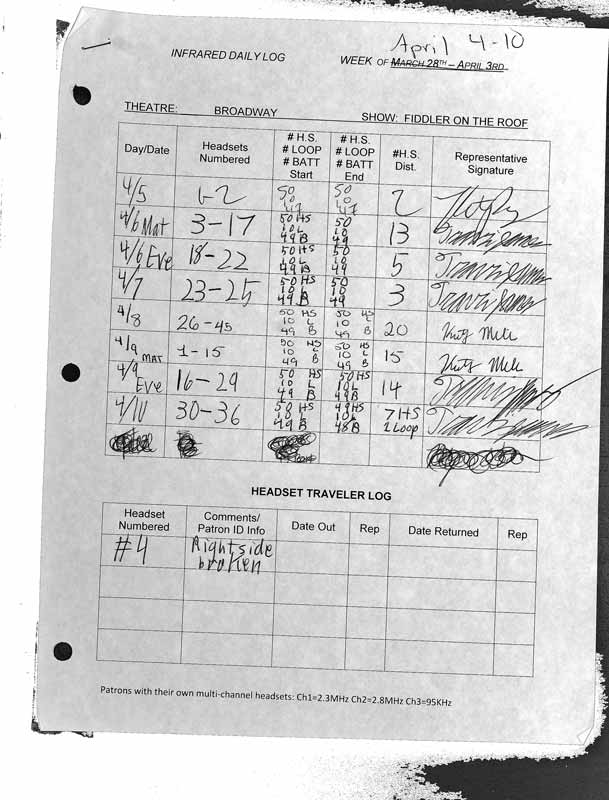 April 4-10
INFRARED DAILY LOG WEEK OF MARCH 28TH – APRIL 3RD
THEATRE: BROADWAY SHOW: FIDDLER ON THE ROOF
Day/Date Headsets Numbered # H.S. # LOOP # BATT Start # H.S. # LOOP # BATT End #H.S. Dist. Representative Signature
4/5 1-2 50 10 47 50 10 47 2
4/6 Mat 3-17 50 HS 10 L 49 B 50 10 49 13
4/6 Eve 18-22 50 HS 10 L 49 B 50 10 49 5
4/7 23-25 50 HS 10 L 49 B 50 10 49 3
4/8 26-45 50 HS 10 L 49 B 50 HS 10 L 49 B 20
4/9 MAT 1-15 50 HS 10 L 49 B 50 HS 10 L 49 B 15
4/9 Eve 16-29 50 HS 10 L 49 B 50 HS 10 L 49 B 14
4/10 30-36 50 HS 10 L 49 B 49 HS 10 L 48 B 7 HS 1 Loop
HEADSET TRAVELER LOG
Headset Numbered Comments/ Patron ID Info Date Out Rep Date Returned Rep
#4 Right side broken
Patrons with their own multi-channel headsets: Ch1=2.3MHz Ch2=2.8MHz Ch3=95KHz